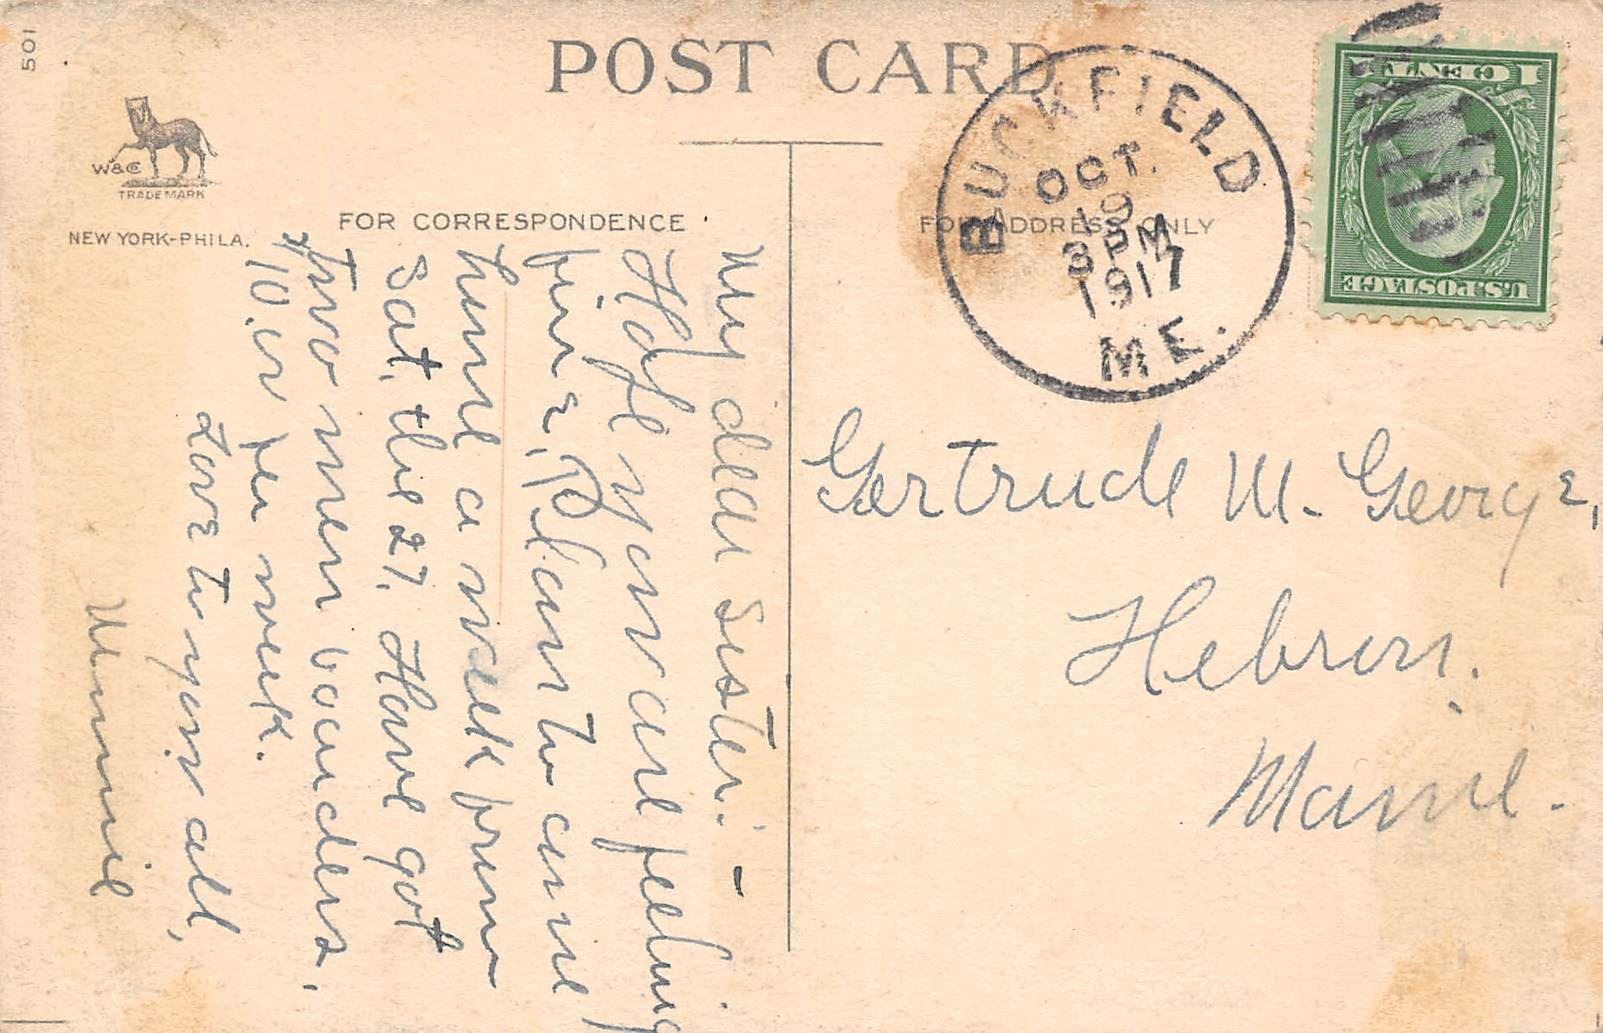 501
POST CARD
W&Co
TRADE MARK
NEW YORK-PHILA.
FOR CORRESPONDENCE
FOR ADDRESS ONLY
BUCKFIELD
OCT.
19
3 PM
1917
ME.
1 CENT 1
U.S. POSTAGE
My dear Sister:-
Hope you are feeling
fine, Plan to come
home a week from
Sat. the 27. Have got
two men boarders,
10.00 per week.
Love to you all,
Minnie
Gertrude M. George,
Hebron.
Maine.